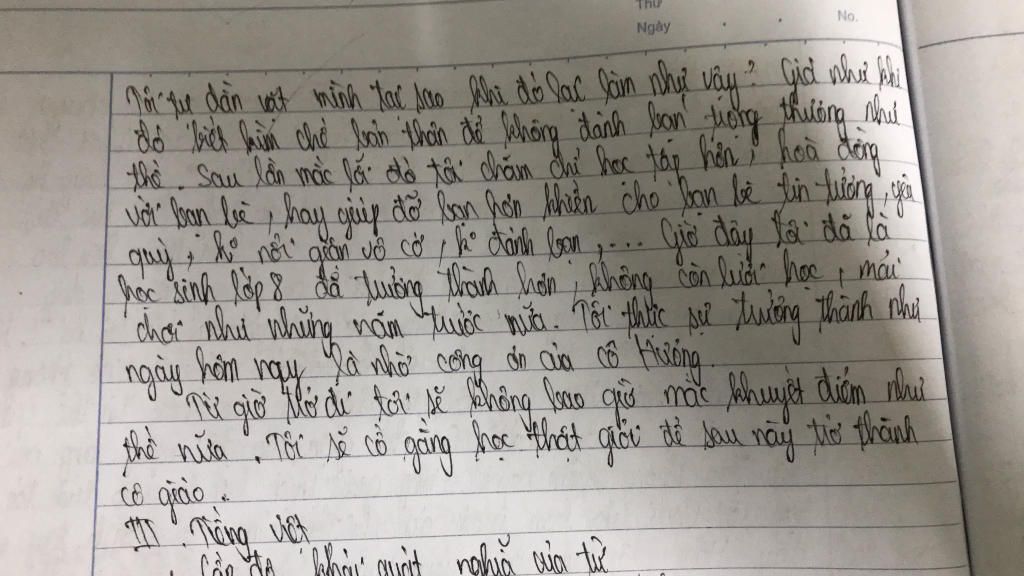 Thứ
Ngày
No.
Tôi tự dằn vặt mình tại sao khi đó lại làm như vậy? Giá như khi
đó biết kìm chế bản thân để không đánh bạn trọng thương như
thế. Sau lần mắc lỗi đó tôi chăm chỉ học tập hơn, hoà đồng
với bạn bè, hay giúp đỡ bạn hơn khiến cho bạn bè tin tưởng, yêu
quý, k° nổi giận vô cớ, k° đánh bạn,... Giờ đây tôi đã là
học sinh lớp 8 đã trưởng thành hơn, không còn lười học, mải
chơi như những năm trước nữa. Tôi thực sự trưởng thành như
ngày hôm nay là nhờ công ơn của cô Hương.
Từ giờ trở đi tôi sẽ không bao giờ mắc khuyết điểm như
thế nữa. Tôi sẽ cố gắng học thật giỏi để sau này trở thành
cô giáo.
III. Tiếng việt
Cấp độ khái quát nghĩa của từ